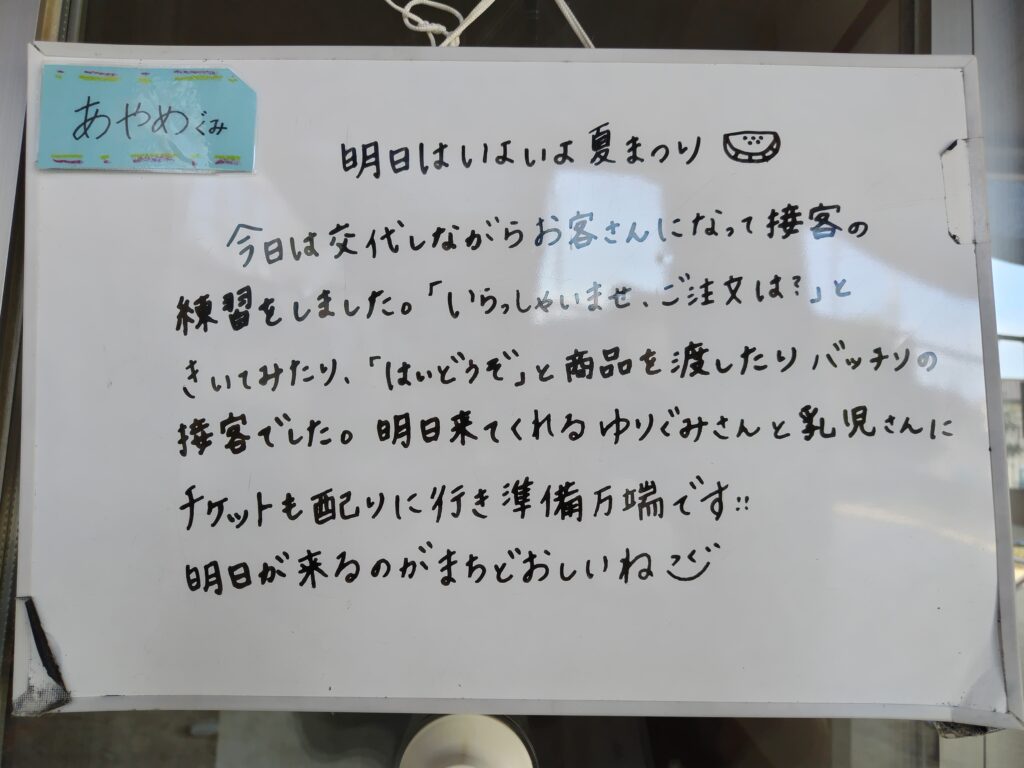 あやめぐみ
明日はいよいよ夏まつり
今日は交代しながらお客さんになって接客の
練習をしました。「いらっしゃいませ、ご注文は?」と
きいてみたり、「はいどうぞ」と商品を渡したりバッチリの
接客でした。明日来てくれるゆりぐみさんと乳児さんに
チケットも配りに行き準備万端です!!
明日が来るのがまちどおしいね